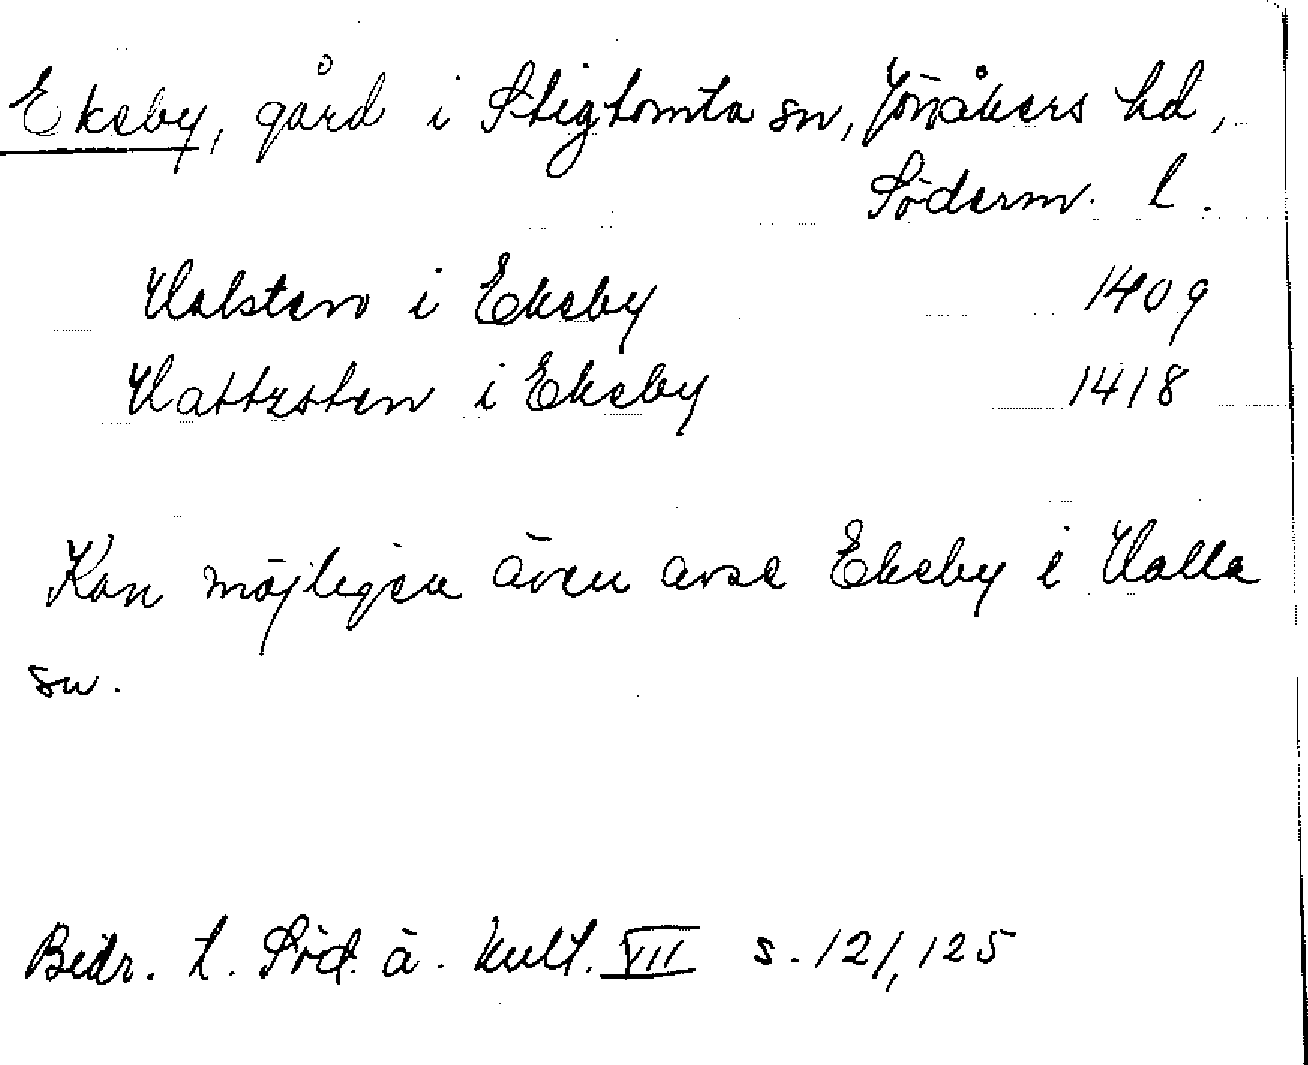 Eksby, gård i Stigtomta sn, Jönåkers hd,
Söderm. l.
Halsten i Eksby 1409
Hattzsten i Eksby 1418
Kan möjligen även avse Eksby i Halla
sn.
Bidr. t. Söd. ä. kult. VII s. 121, 125